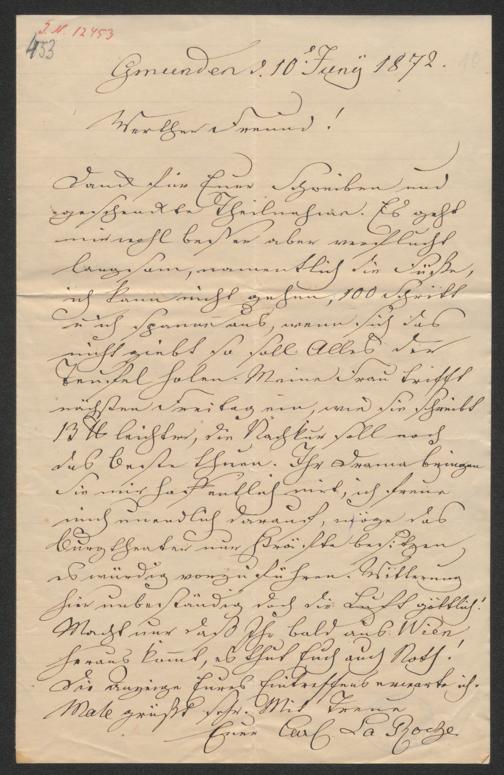 I. N. 12453
453
Gmunden d. 10t Juny 1872.
Werther Freund!
Dank für Euer Schreiben und
geschenkte Theilnahme. Es geht
mir wohl besser aber verflucht
langsam, namentlich die Füße,
ich kann nicht gehen, 100 Schritt
u ich spanne aus, wenn sich das
nicht giebt so soll Alles der
Teufel holen. Meine Frau trifft
nächsten Freitag ein, wie sie schreibt
13 ℔ leichter, die Nachkur soll noch
das beste thuen. Ihr Drama bringen
Sie mir hoffentlich mit, ich freue
mich unendlich darauf, möge das
Burgtheater nur Kräfte besitzen,
es würdig vorzuführen. Witterung
hier unbeständig doch die Luft göttlich!
Macht nur daß Ihr bald aus Wien
heraus kommt, es thut Euch auch Noth!
Die Anzeige Eures Eintreffens erwarte ich.
Male grüßt sehr. Mit Treue
Euer Carl La Roche.